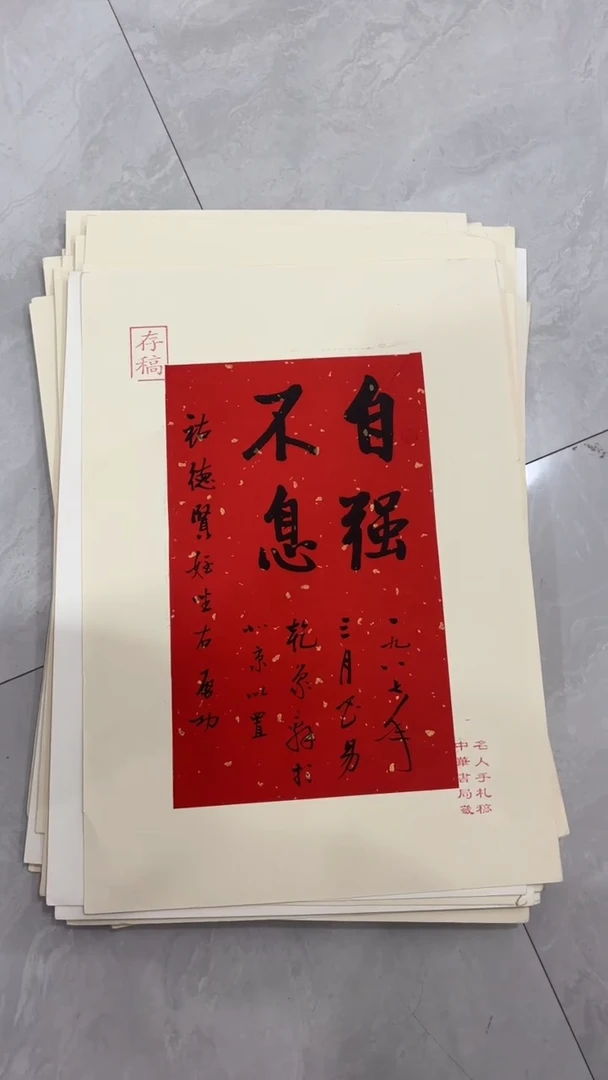 存稿
自强
不息
一九八七年
三月书易
乾象辞於
北京以置
祐德賢姪坐右 启功
名人手札稿
中華書局藏